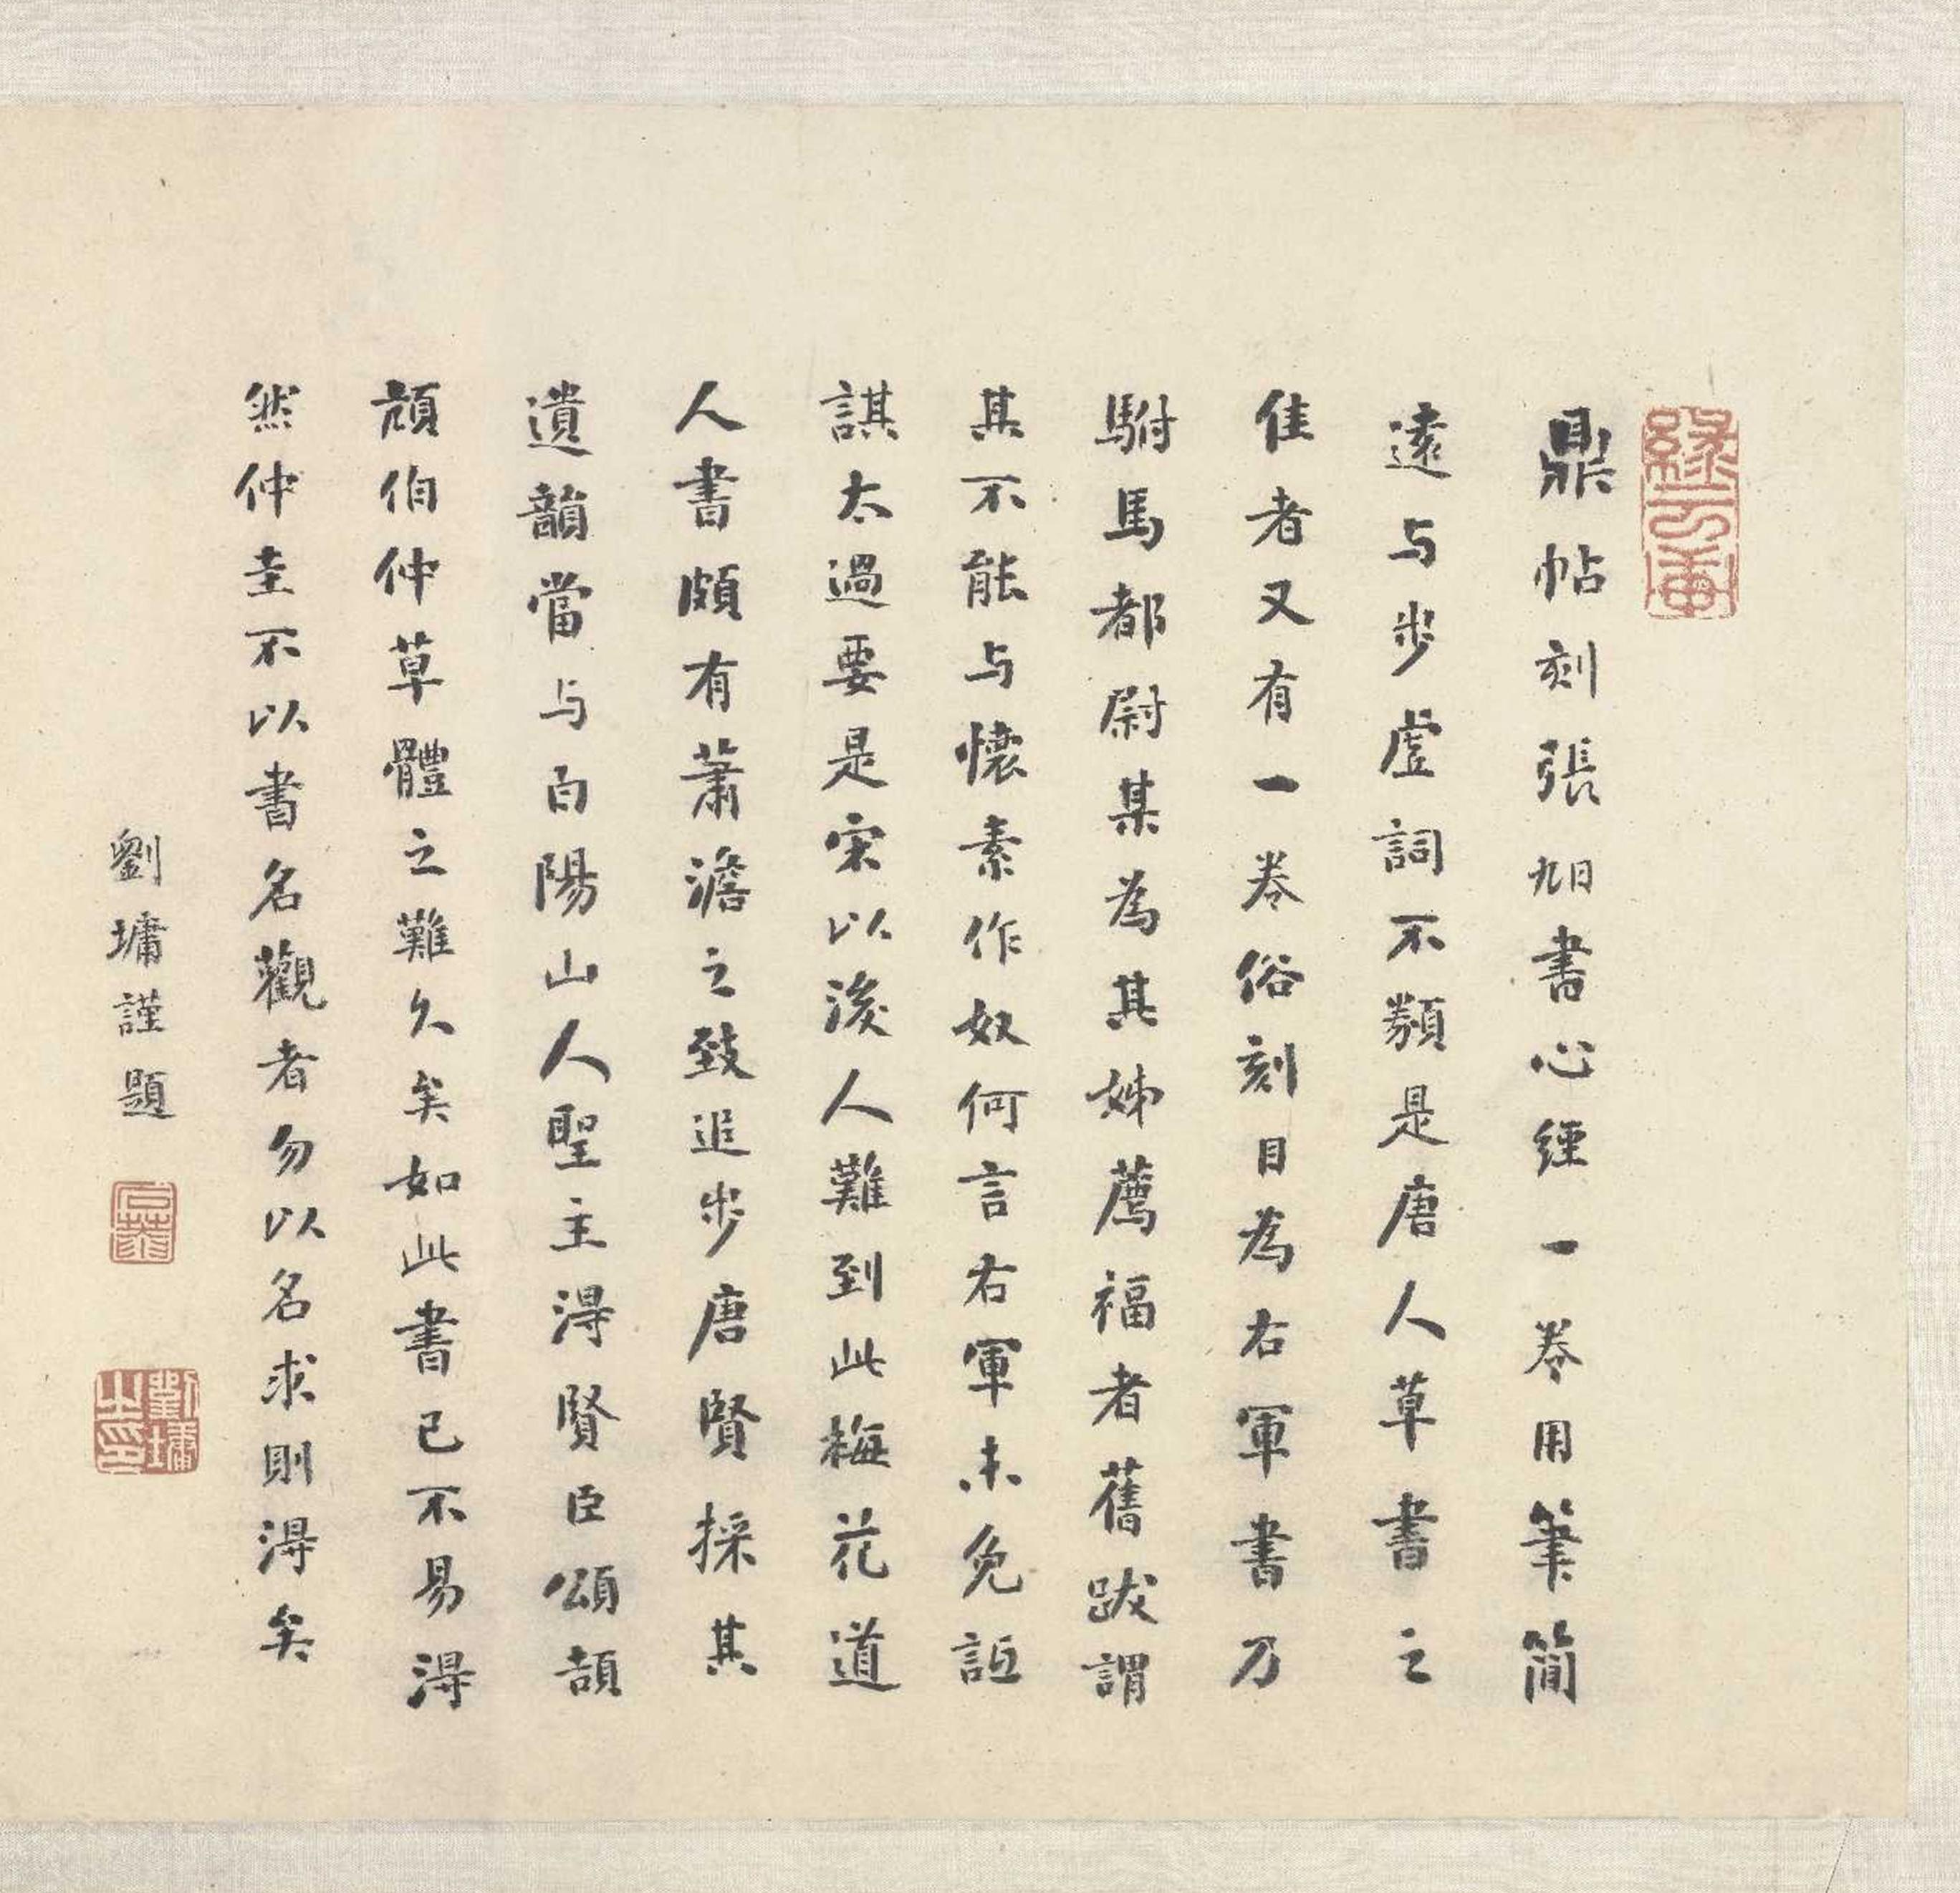 鼎帖刻張旭書心經一卷用筆簡
遠与步虛詞不類是唐人草書之
佳者又有一卷俗刻目為右軍書乃
駙馬都尉某為其姊薦福者舊跋謂
其不能与懷素作奴何言右軍未免詆
諆太過要是宋以後人難到此梅花道
人書頗有蕭澹之致追步唐賢採其
遺韻當与白陽山人聖主得賢臣頌頡
頏伯仲草體之難久矣如此書已不易得
然仲圭不以書名觀者勿以名求則得矣
劉墉謹題
石菴
劉墉之印